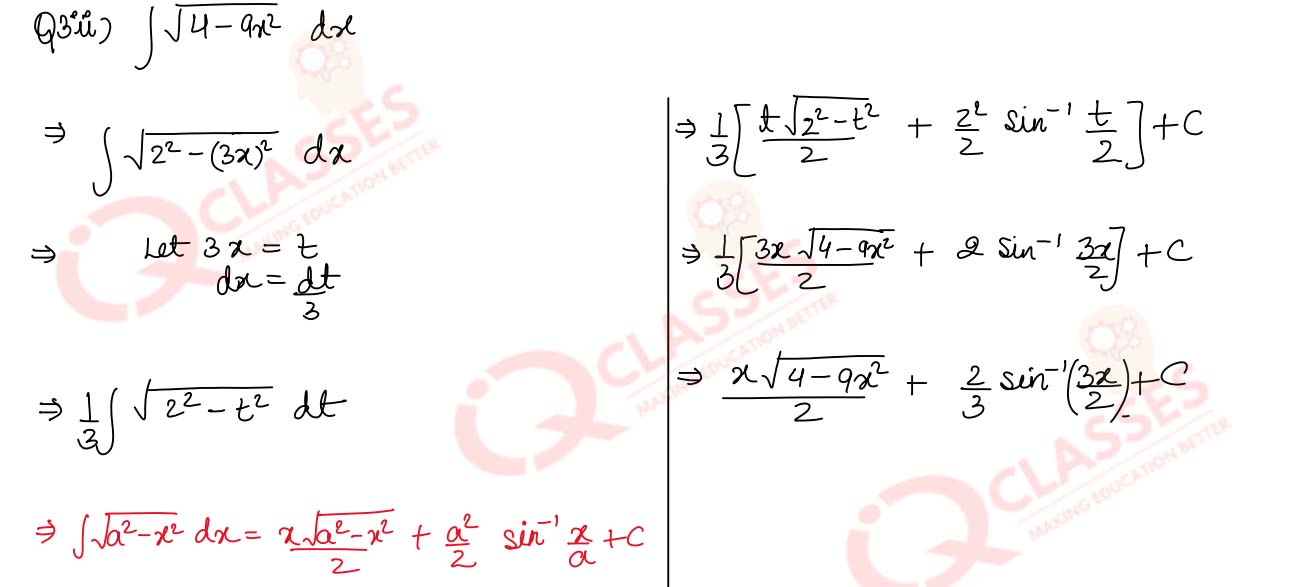 Q3 ii) ∫ √(4 − 9x²) dx
⇒ ∫ √(2² − (3x)²) dx
⇒ Let 3x = t
dx = dt/3
⇒ 1/3 ∫ √(2² − t²) dt
⇒ ∫ √(a² − x²) dx = x√(a² − x²)/2 + a²/2 sin⁻¹ x/a + C
⇒ 1/3 [t√(2² − t²)/2 + 2²/2 sin⁻¹ t/2] + C
⇒ 1/3 [3x√(4 − 9x²)/2 + 2 sin⁻¹ 3x/2] + C
⇒ x√(4 − 9x²)/2 + 2/3 sin⁻¹(3x/2) + C
iQ CLASSES
MAKING EDUCATION BETTER
iQ CLASSES
MAKING EDUCATION BETTER
iQ CLASSES
MAKING EDUCATION BETTER